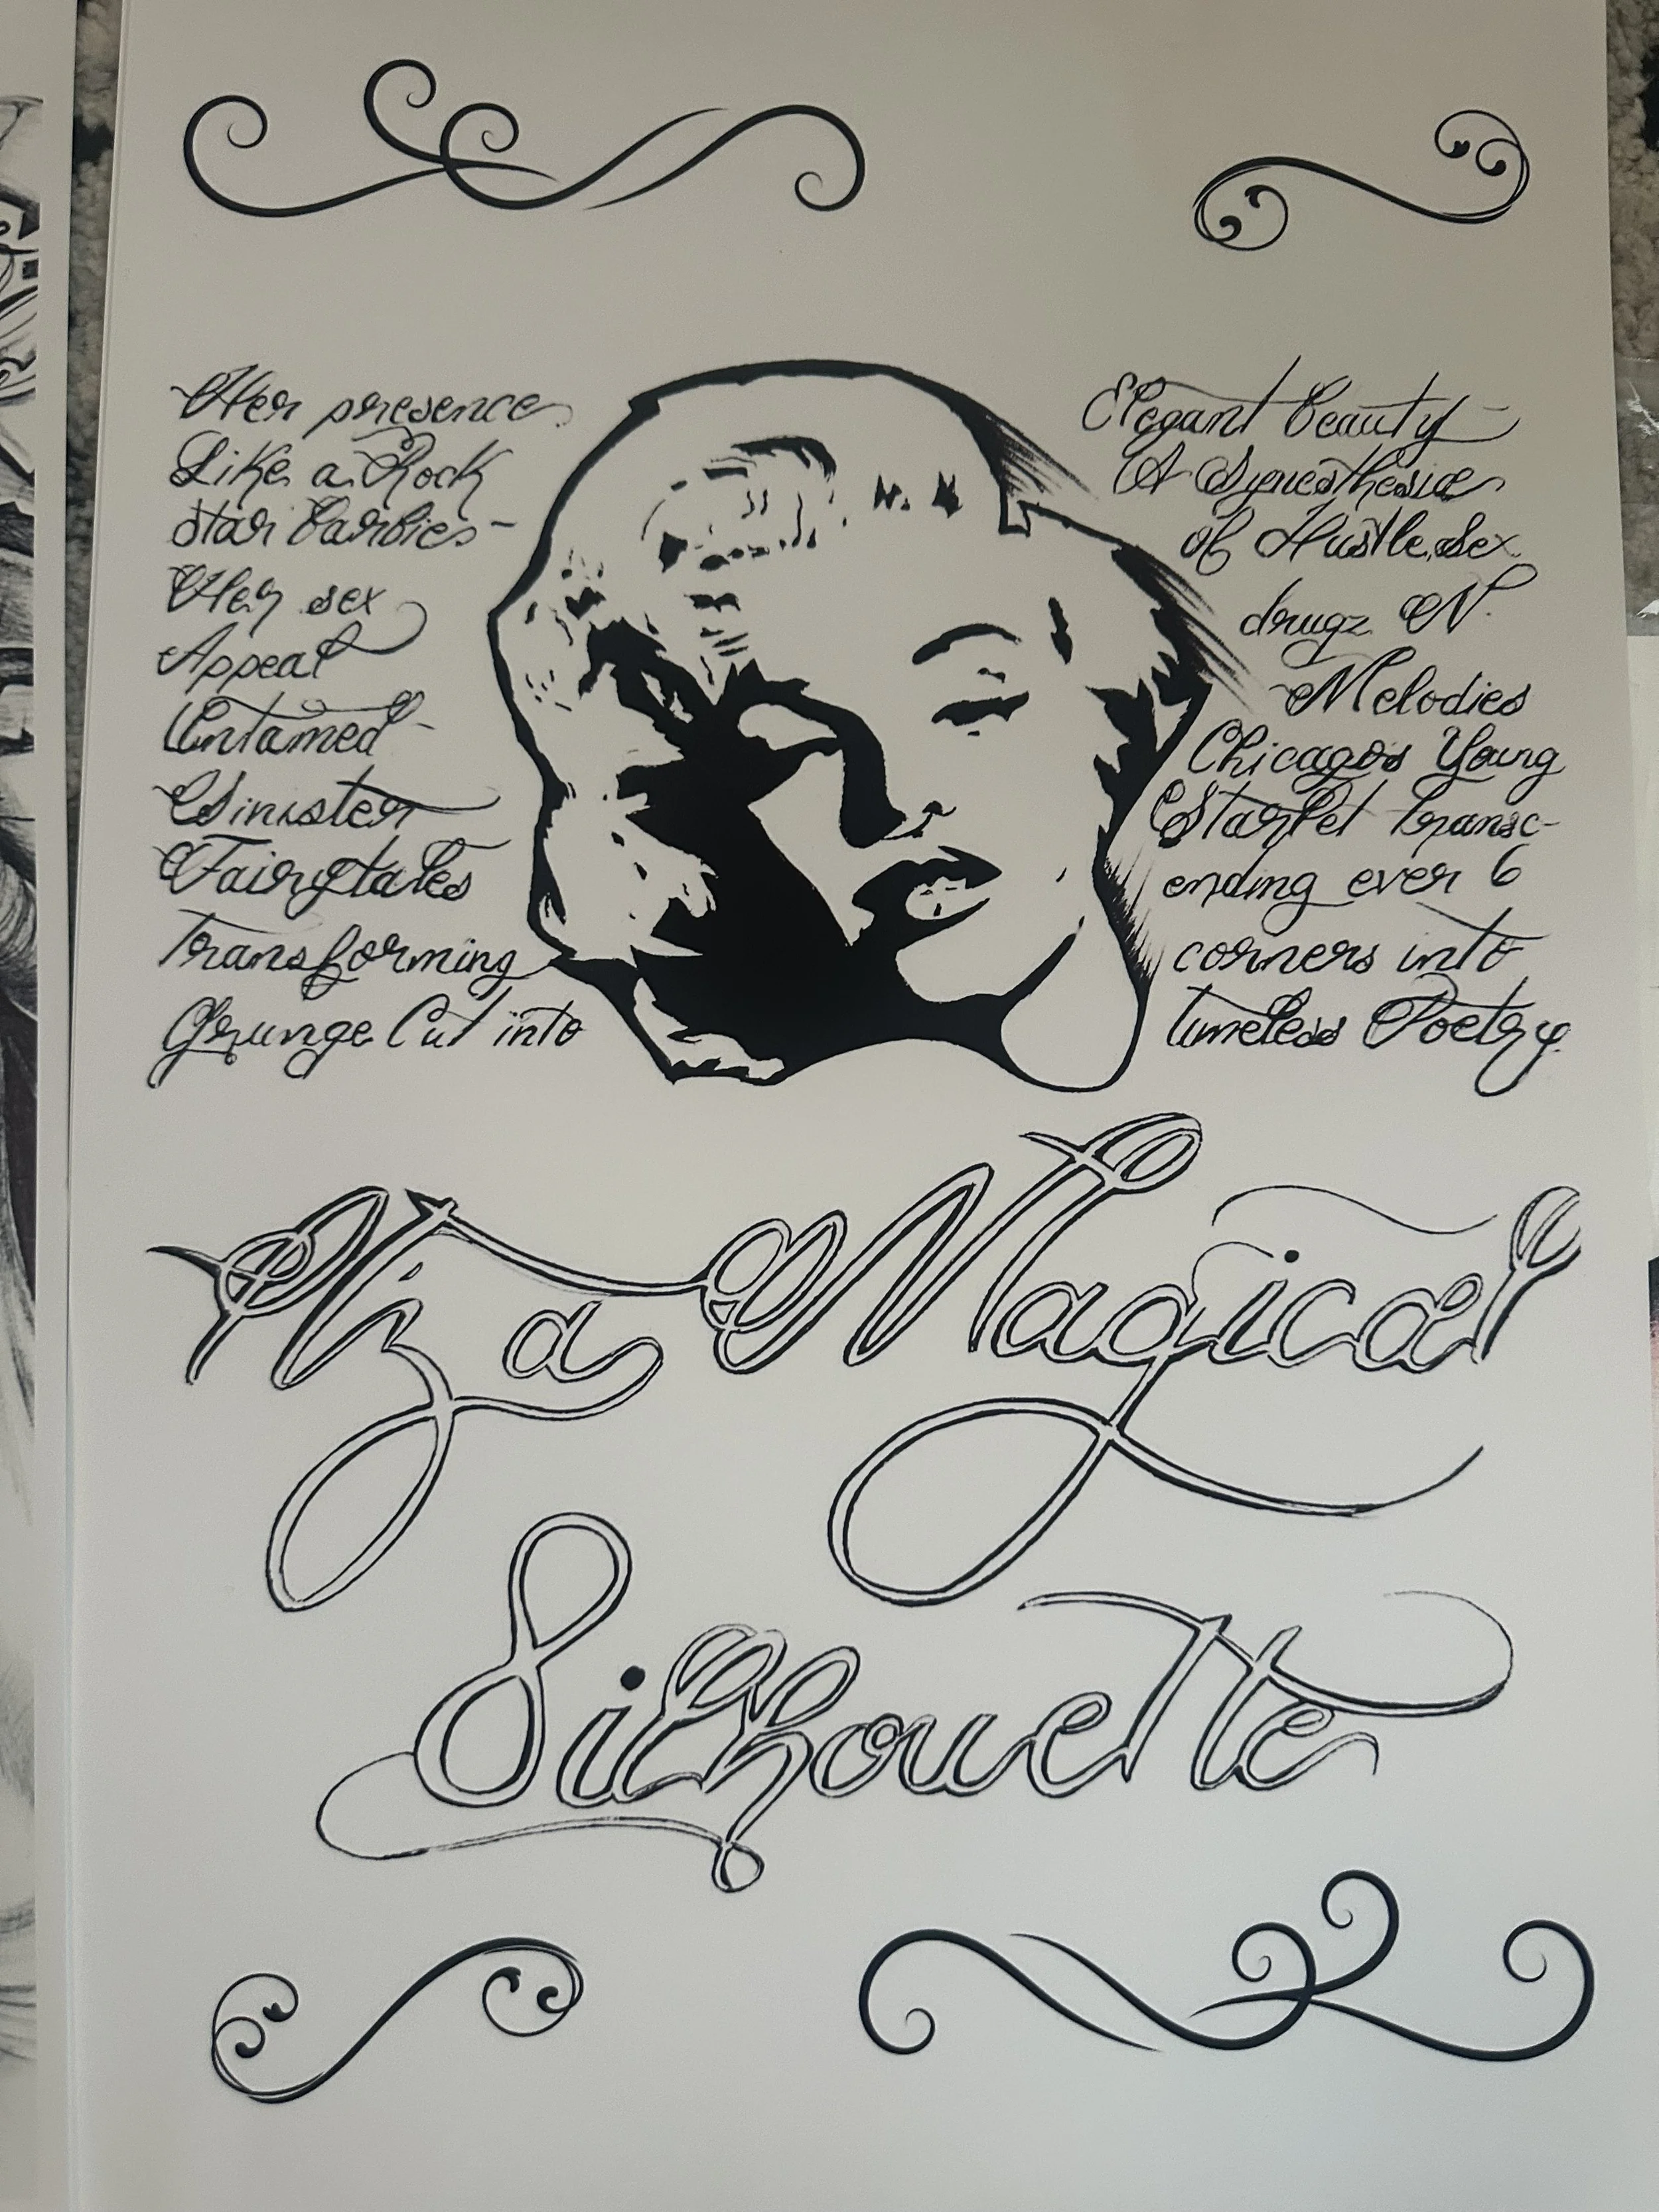 Her presence
Like a Rock
star barbies-
Her sex
Appeal
Untamed-
Sinister
Fairytales
Transforming
Grunge Cut into
Elegant beauty-
A Synesthesia
of Hustle, Sex
drugz N'
Melodies
Chicagos Young
Starlet transc-
ending ever 6
corners into
timeless Poetry.
Iz a Magical
Silhouette